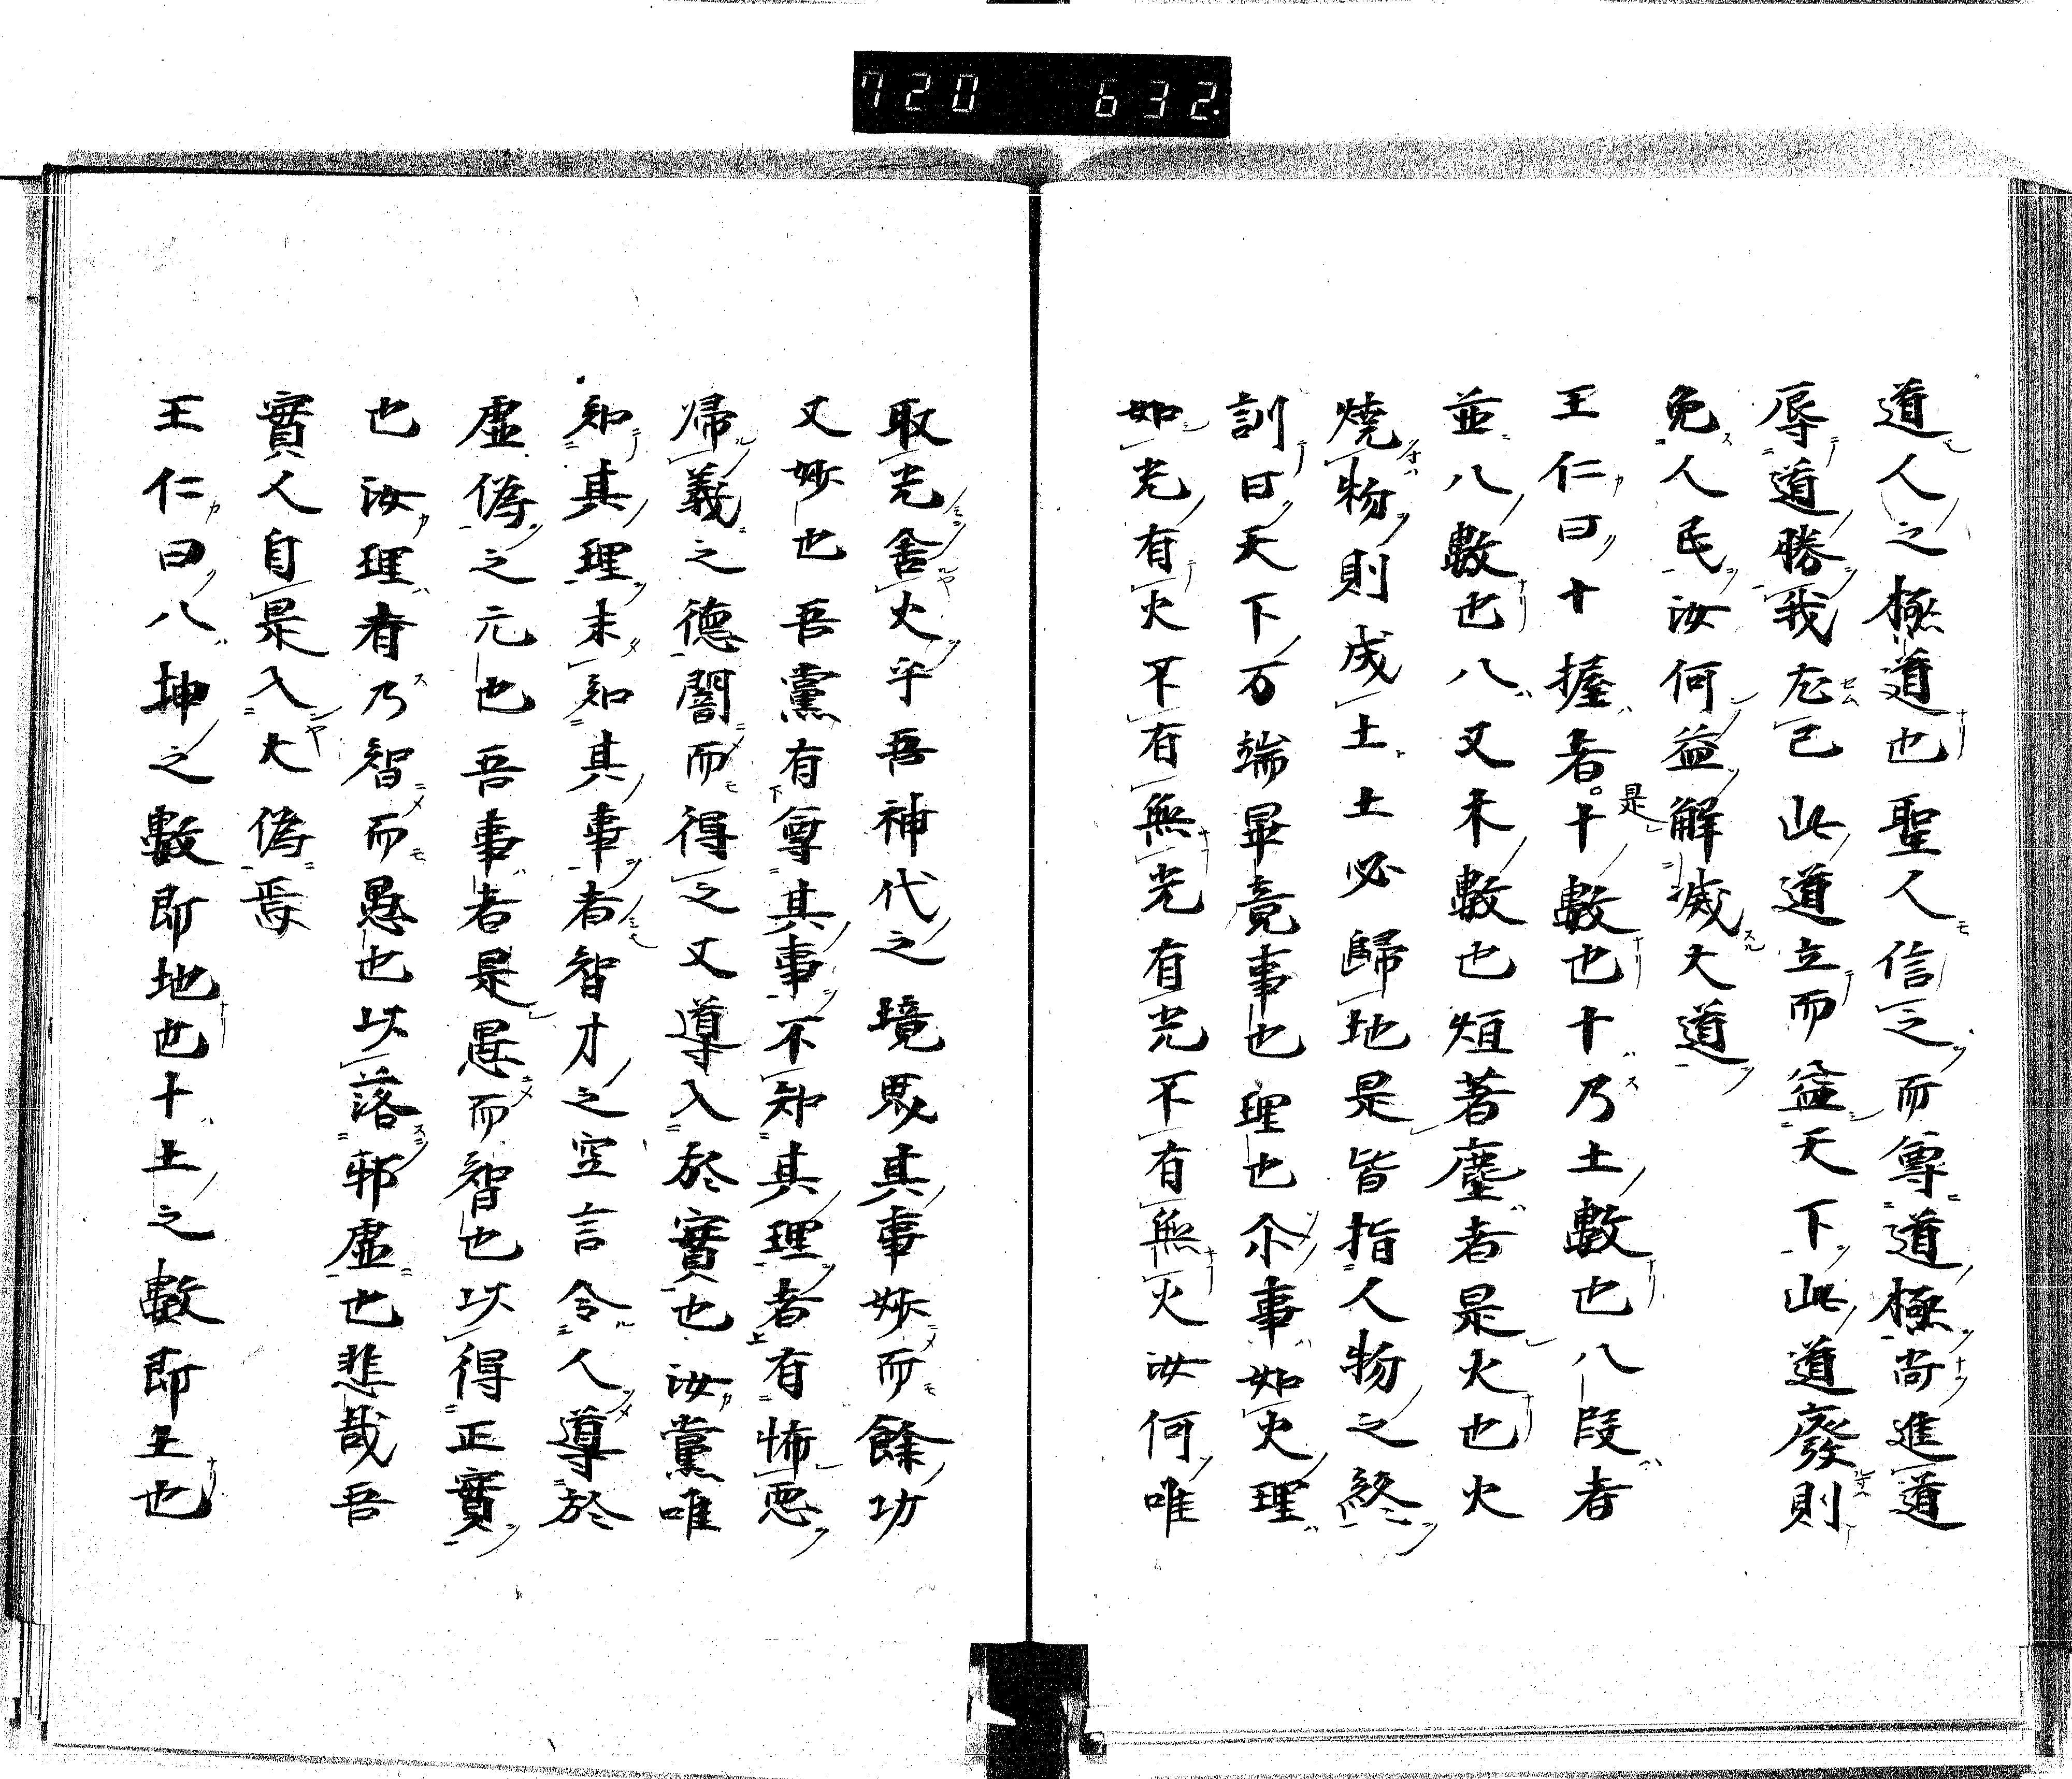 720 632.
道人之極道也聖人信之而尊道極尚進道
辱道勝我左己此道立而益天下此道廢則
免人民汝何益解滅大道
王仁曰十握者是十數也十乃土數也八段者
並八數也八又木數也烟著塵者是火也火
燒物則成土土必歸地是皆指人物之終
訓曰天下万端畢竟事也理也尓事如火理
如光有火不有無光有光不有無火汝何唯
取光舍火乎吾神代之境界其事妙而餘功
又妙也吾黨有尊其事不知其理者有怖惡
帰義之德闇而得之又導入於實也汝黨唯
知其理未知其事者智才之空言令人導於
虛偽之元也吾事者是愚而智也以得正實
也汝理者乃智而愚也以落邪虛也悲哉吾
實人自是入大偽焉
王仁曰八坤之數即地也十土之數即土也